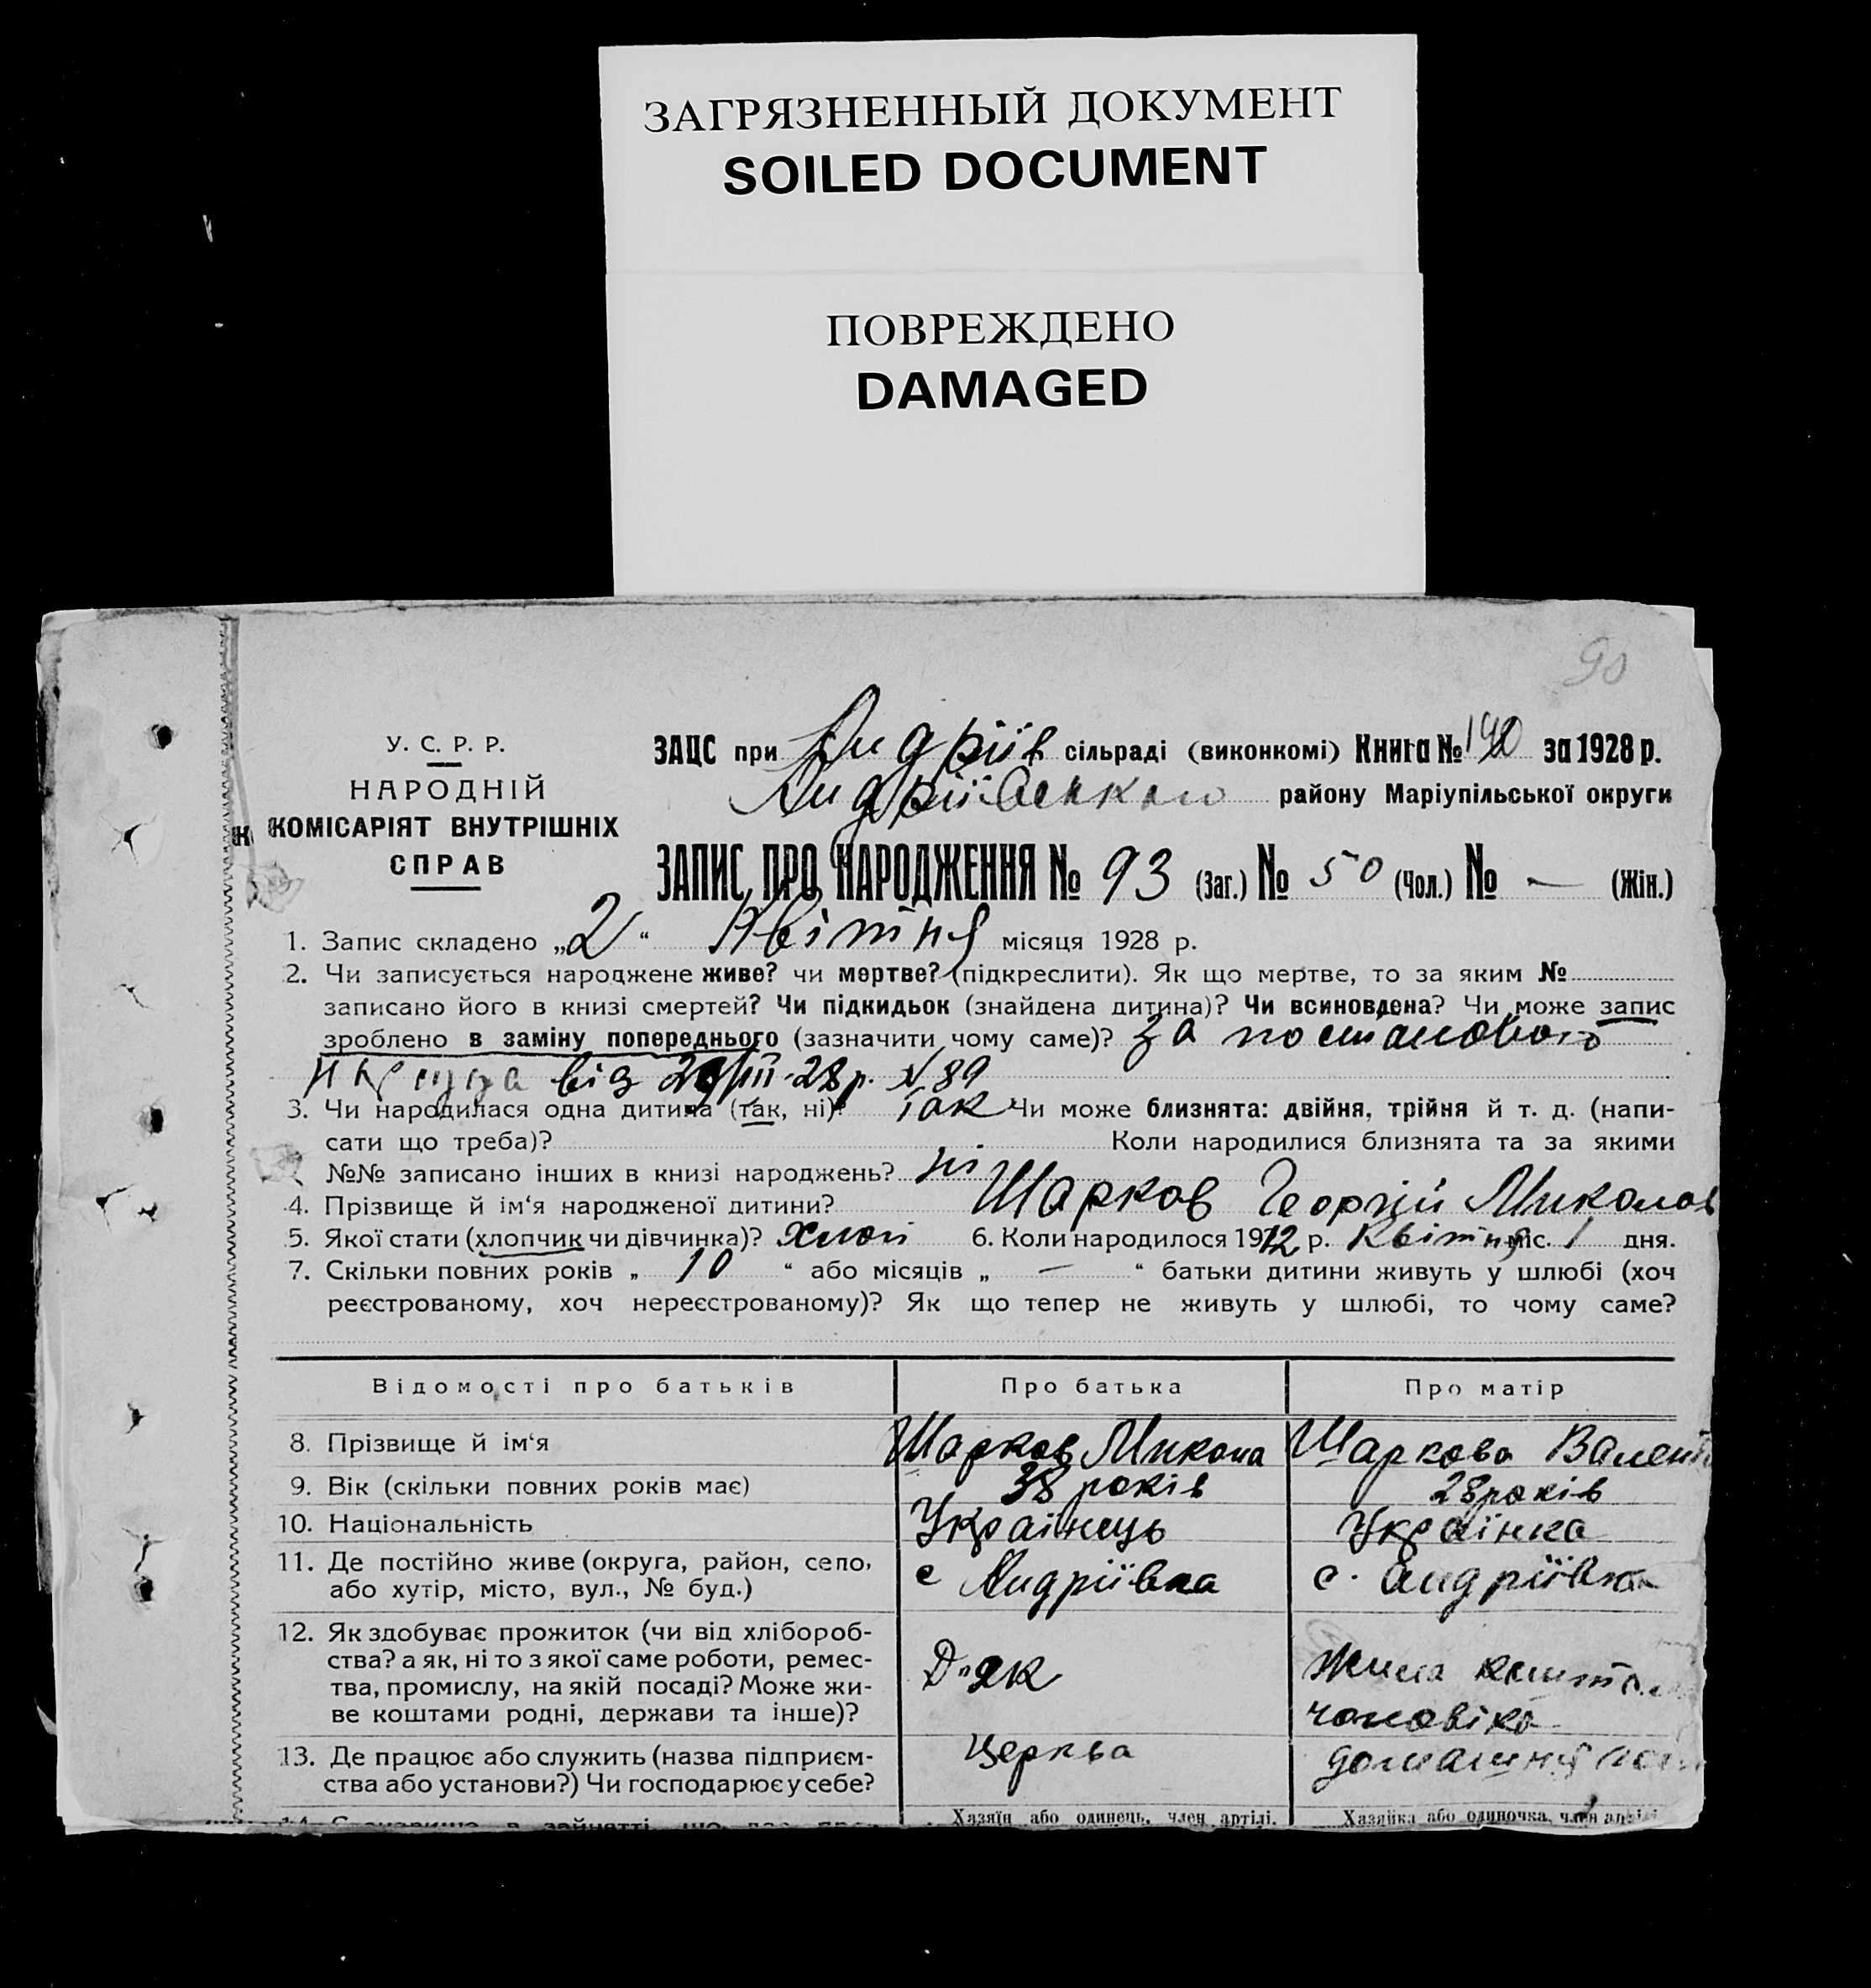 ЗАГРЯЗНЕННЫЙ ДОКУМЕНТ
SOILED DOCUMENT
ПОВРЕЖДЕНО
DAMAGED
90
У. С. Р. Р.
НАРОДНІЙ
КОМІСАРІЯТ ВНУТРІШНІХ
СПРАВ
ЗАЦС при Андріїв сільраді (виконкомі) Книга № за 1928 р.
Андріївського району Маріупільської округи
ЗАПИС ПРО НАРОДЖЕННЯ № 93 (Заг.) № 50 (Чол.) № — (Жін.)
1. Запис складено „2“ Квітня місяця 1928 р.
2. Чи записується народжене живе? чи мертве? (підкреслити). Як що мертве, то за яким №
записано його в книзі смертей? Чи підкидьок (знайдена дитина)? Чи всиновлена? Чи може запис
зроблено в заміну попереднього (зазначити чому саме)? За постановою
від 28 р. № 89
3. Чи народилася одна дитина (так, ні)? так Чи може близнята: двійня, трійня й т. д. (напи-
сати що треба)? Коли народилися близнята та за якими
№№ записано інших в книзі народжень? ні
4. Прізвище й ім‘я народженої дитини? Шарков Георгій Миколов
5. Якої стати (хлопчик чи дівчинка)? хлоп 6. Коли народилося 1912 р. Квітня міс. 1 дня.
7. Скільки повних років „ 10 “ або місяців „ — “ батьки дитини живуть у шлюбі (хоч
реєстрованому, хоч нереєстрованому)? Як що тепер не живуть у шлюбі, то чому саме?
Відомості про батьків Про батька Про матір
8. Прізвище й ім‘я Шарков Микола Шаркова Валент
9. Вік (скільки повних років має) 38 років 28 років
10. Національність Українець Українка
11. Де постійно живе (округа, район, село, с Андріївка с. Андріївка
або хутір, місто, вул., № буд.)
12. Як здобуває прожиток (чи від хлібороб-
ства? а як, ні то з якої саме роботи, ремес- Д"як
тва, промислу, на якій посаді? Може жи-
ве коштами родні, держави та інше)? чоловіка
13. Де працює або служить (назва підприєм- Церква домашня
ства або установи?) Чи господарює у себе?
Хазяїн або одинець, член артілі. Хазяйка або одиночка, член артілі